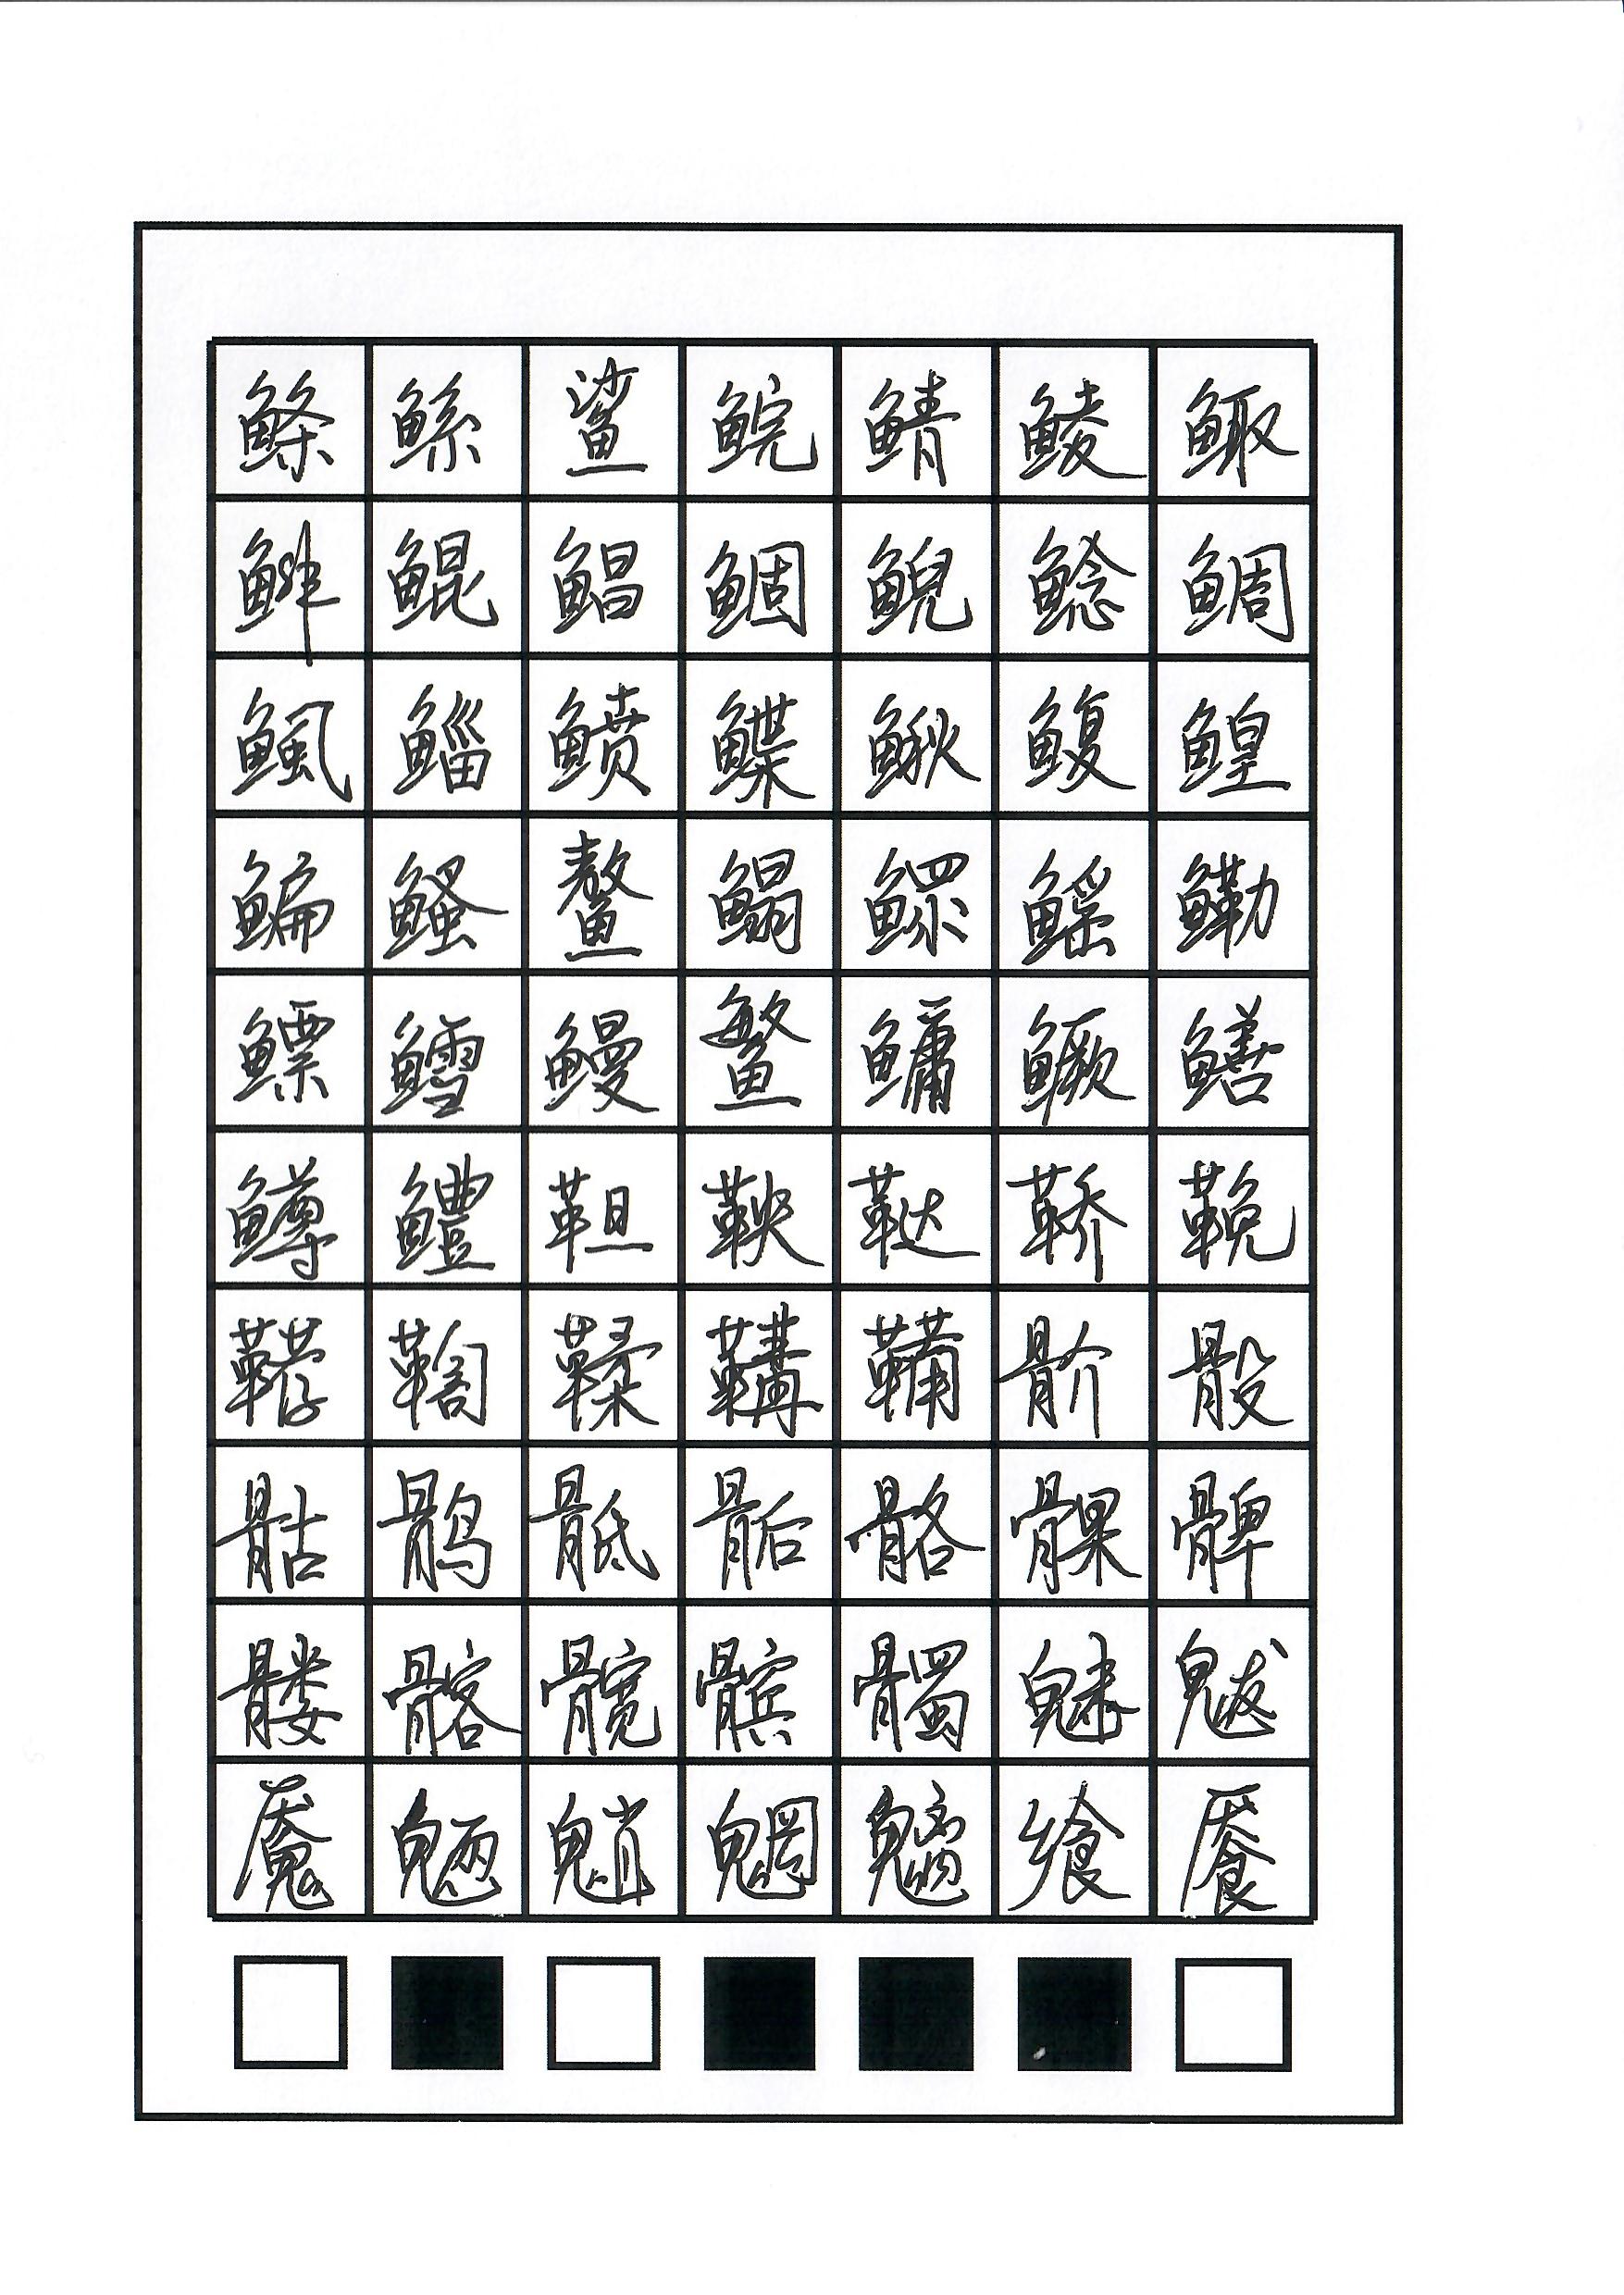 鲦鲧鲨鲩鲭鲮鲰
鲱鲲鲳鲴鲵鲶鲷
鲺鲻鲼鲽鳅鳆鳇
鳊鳋鳌鳎鳏鳐鳓
鳔鳕鳗鳘鳙鳜鳝
鳟鳢靼鞅鞑鞒鞔
鞯鞫鞣鞲鞴骱骰
骷鹘骶骺骼髁髀
髅髂髋髌髑魅魃
魇魉魈魍魑飨餍